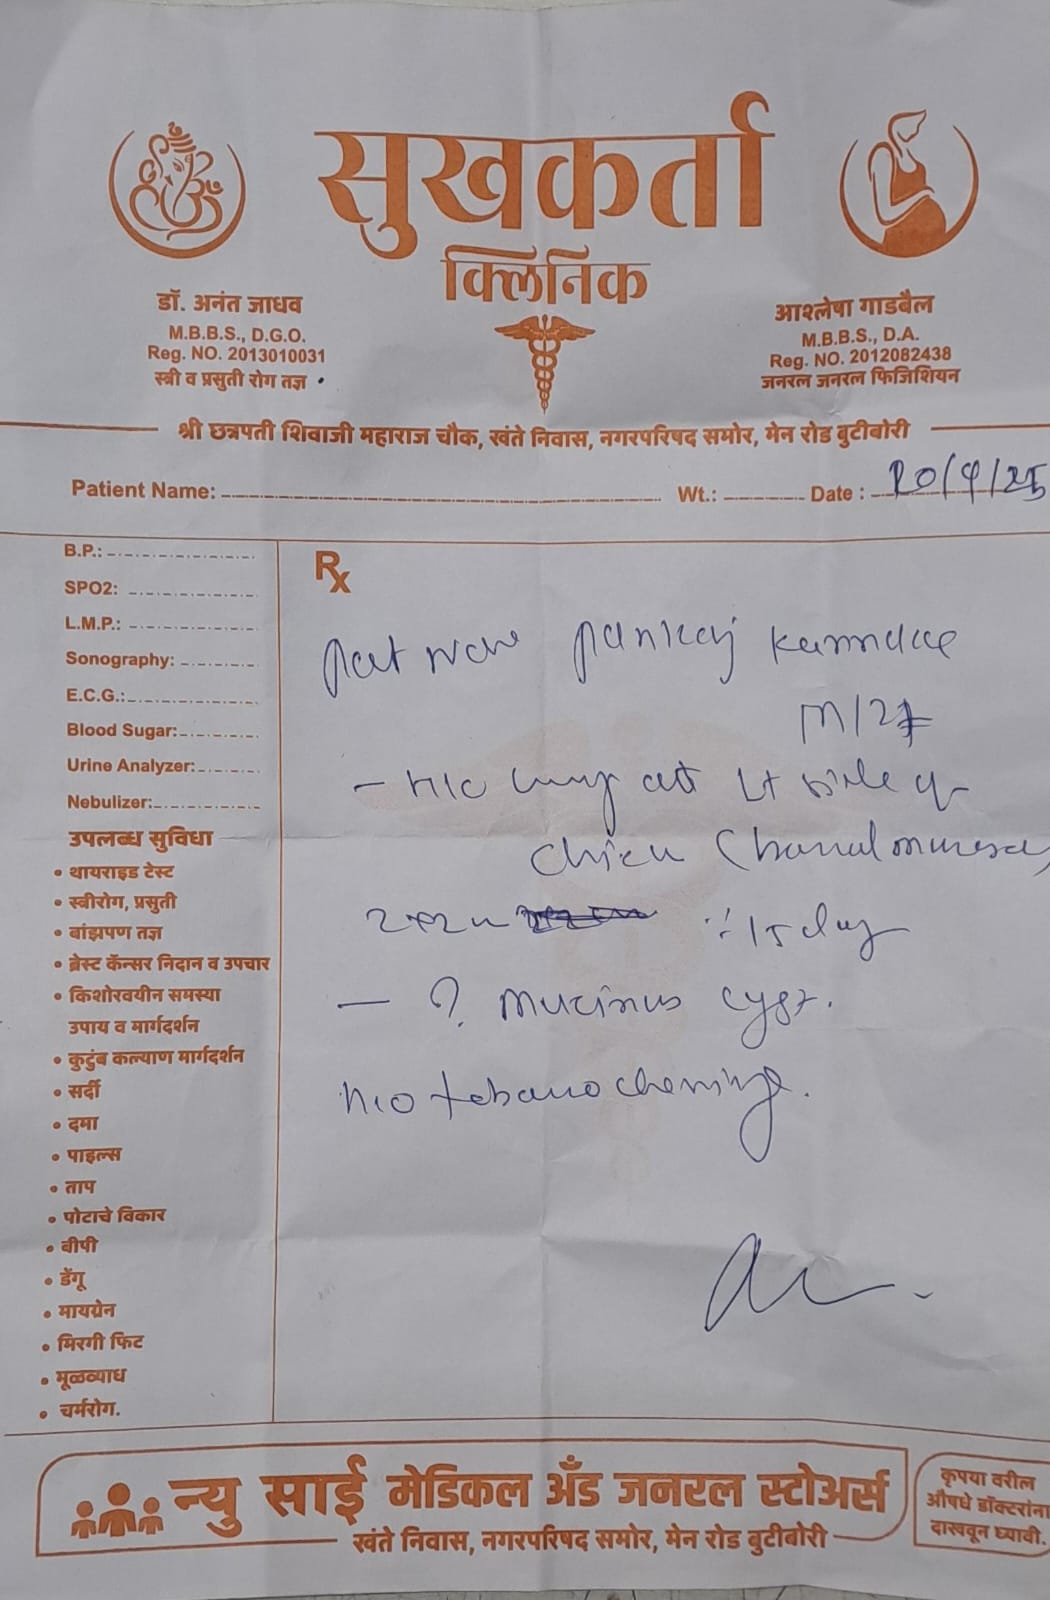 सुखकर्ता
क्लिनिक
डॉ. अनंत जाधव
M.B.B.S., D.G.O.
Reg. NO. 2013010031
स्त्री व प्रसुती रोग तज्ञ
आश्लेषा गाडबैल
M.B.B.S., D.A.
Reg. NO. 2012082438
जनरल जनरल फिजिशियन
श्री छत्रपती शिवाजी महाराज चौक, खंते निवास, नगरपरिषद समोर, मेन रोड बुटीबोरी
Patient Name: Wt.: Date : 20/9/25
B.P.:
SPO2:
L.M.P.:
Sonography:
E.C.G.:
Blood Sugar:
Urine Analyzer:
Nebulizer:
उपलब्ध सुविधा
• थायराइड टेस्ट
• स्त्रीरोग, प्रसुती
• बांझपण तज्ञ
• ब्रेस्ट कॅन्सर निदान व उपचार
• किशोरवयीन समस्या
उपाय व मार्गदर्शन
• कुटुंब कल्याण मार्गदर्शन
• सर्दी
• दमा
• पाइल्स
• ताप
• पोटाचे विकार
• बीपी
• डेंगू
• मायग्रेन
• मिरगी फिट
• मूळव्याध
• चर्मरोग.
Rx
pankaj
M/27
- H/o at Lt side of
15 day
- ? mucinus cyst.
H/o chewing.
न्यु साई मेडिकल अँड जनरल स्टोअर्स
खंते निवास, नगरपरिषद समोर, मेन रोड बुटीबोरी
कृपया वरील
औषधे डॉक्टरांना
दाखवून घ्यावी.